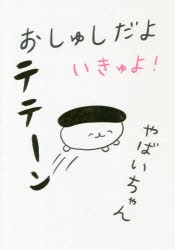 おしゅしだよ
いきゅよ!
テテーン
やばいちゃん